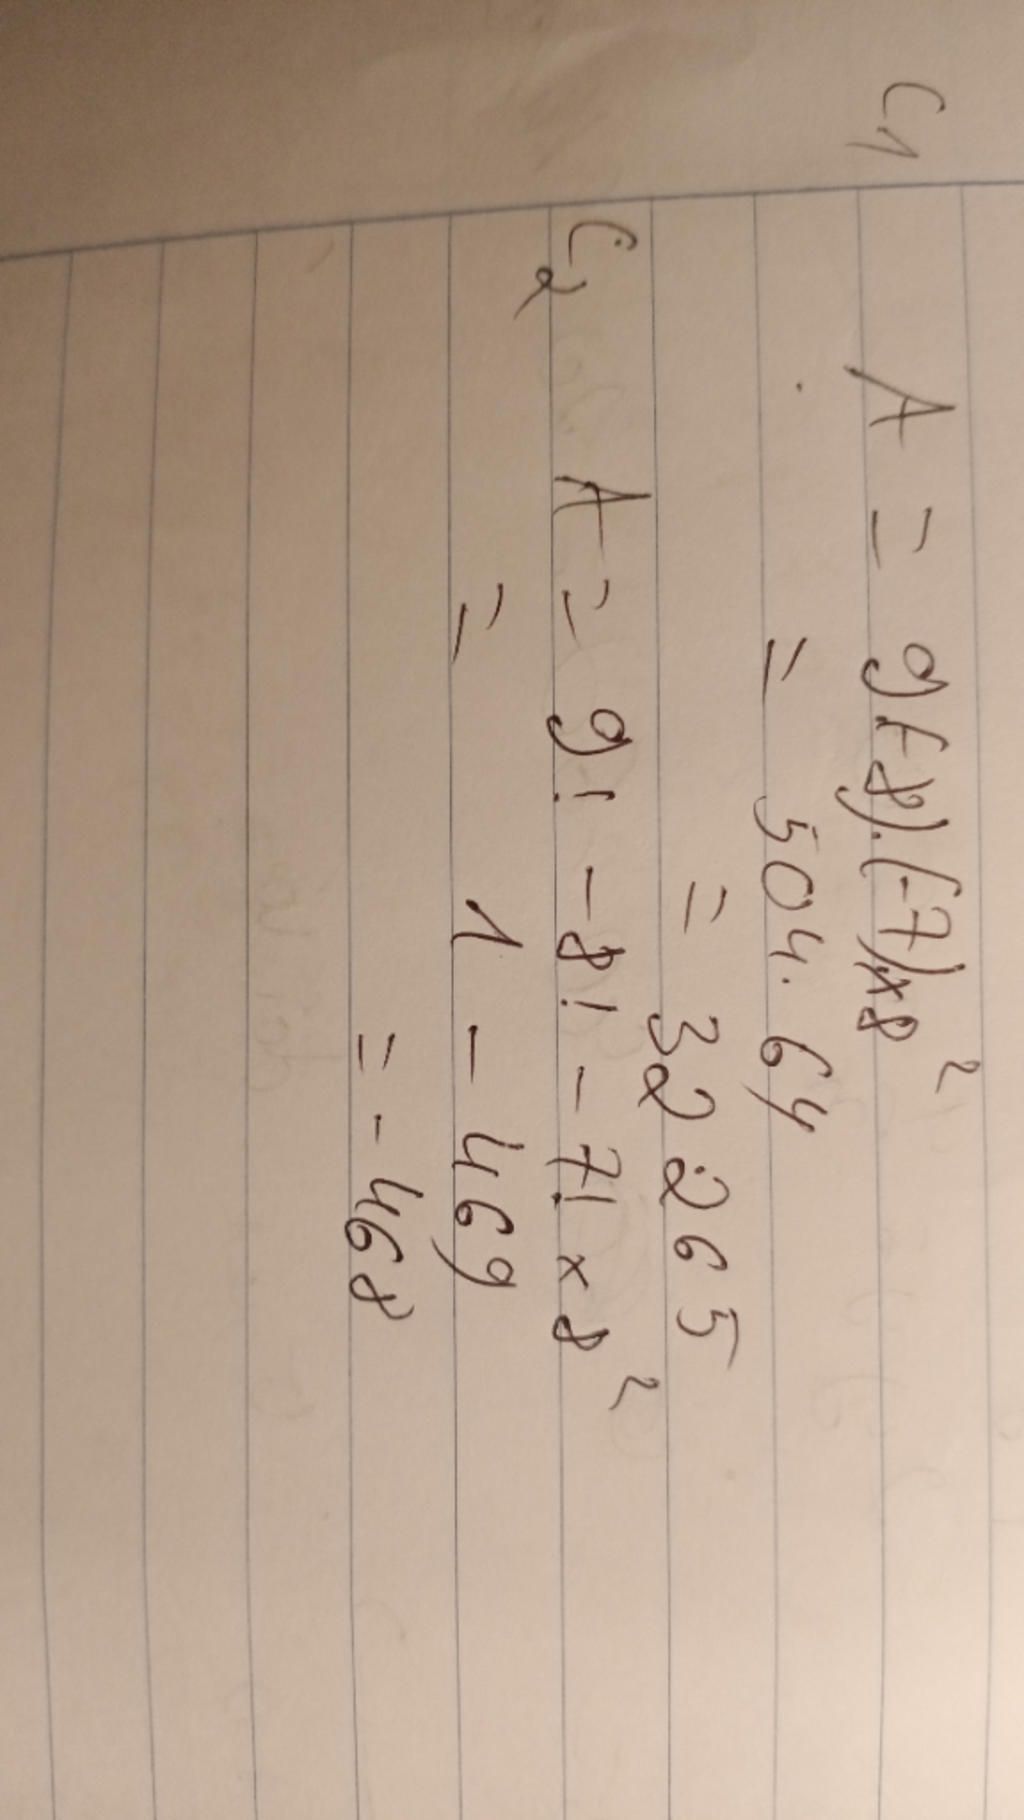 C1 A = 9(-8).(-7)x8²
= 504. 64
= 32265
C2 A = 9! - 8! - 7! x 8²
= 1 - 469
= - 468